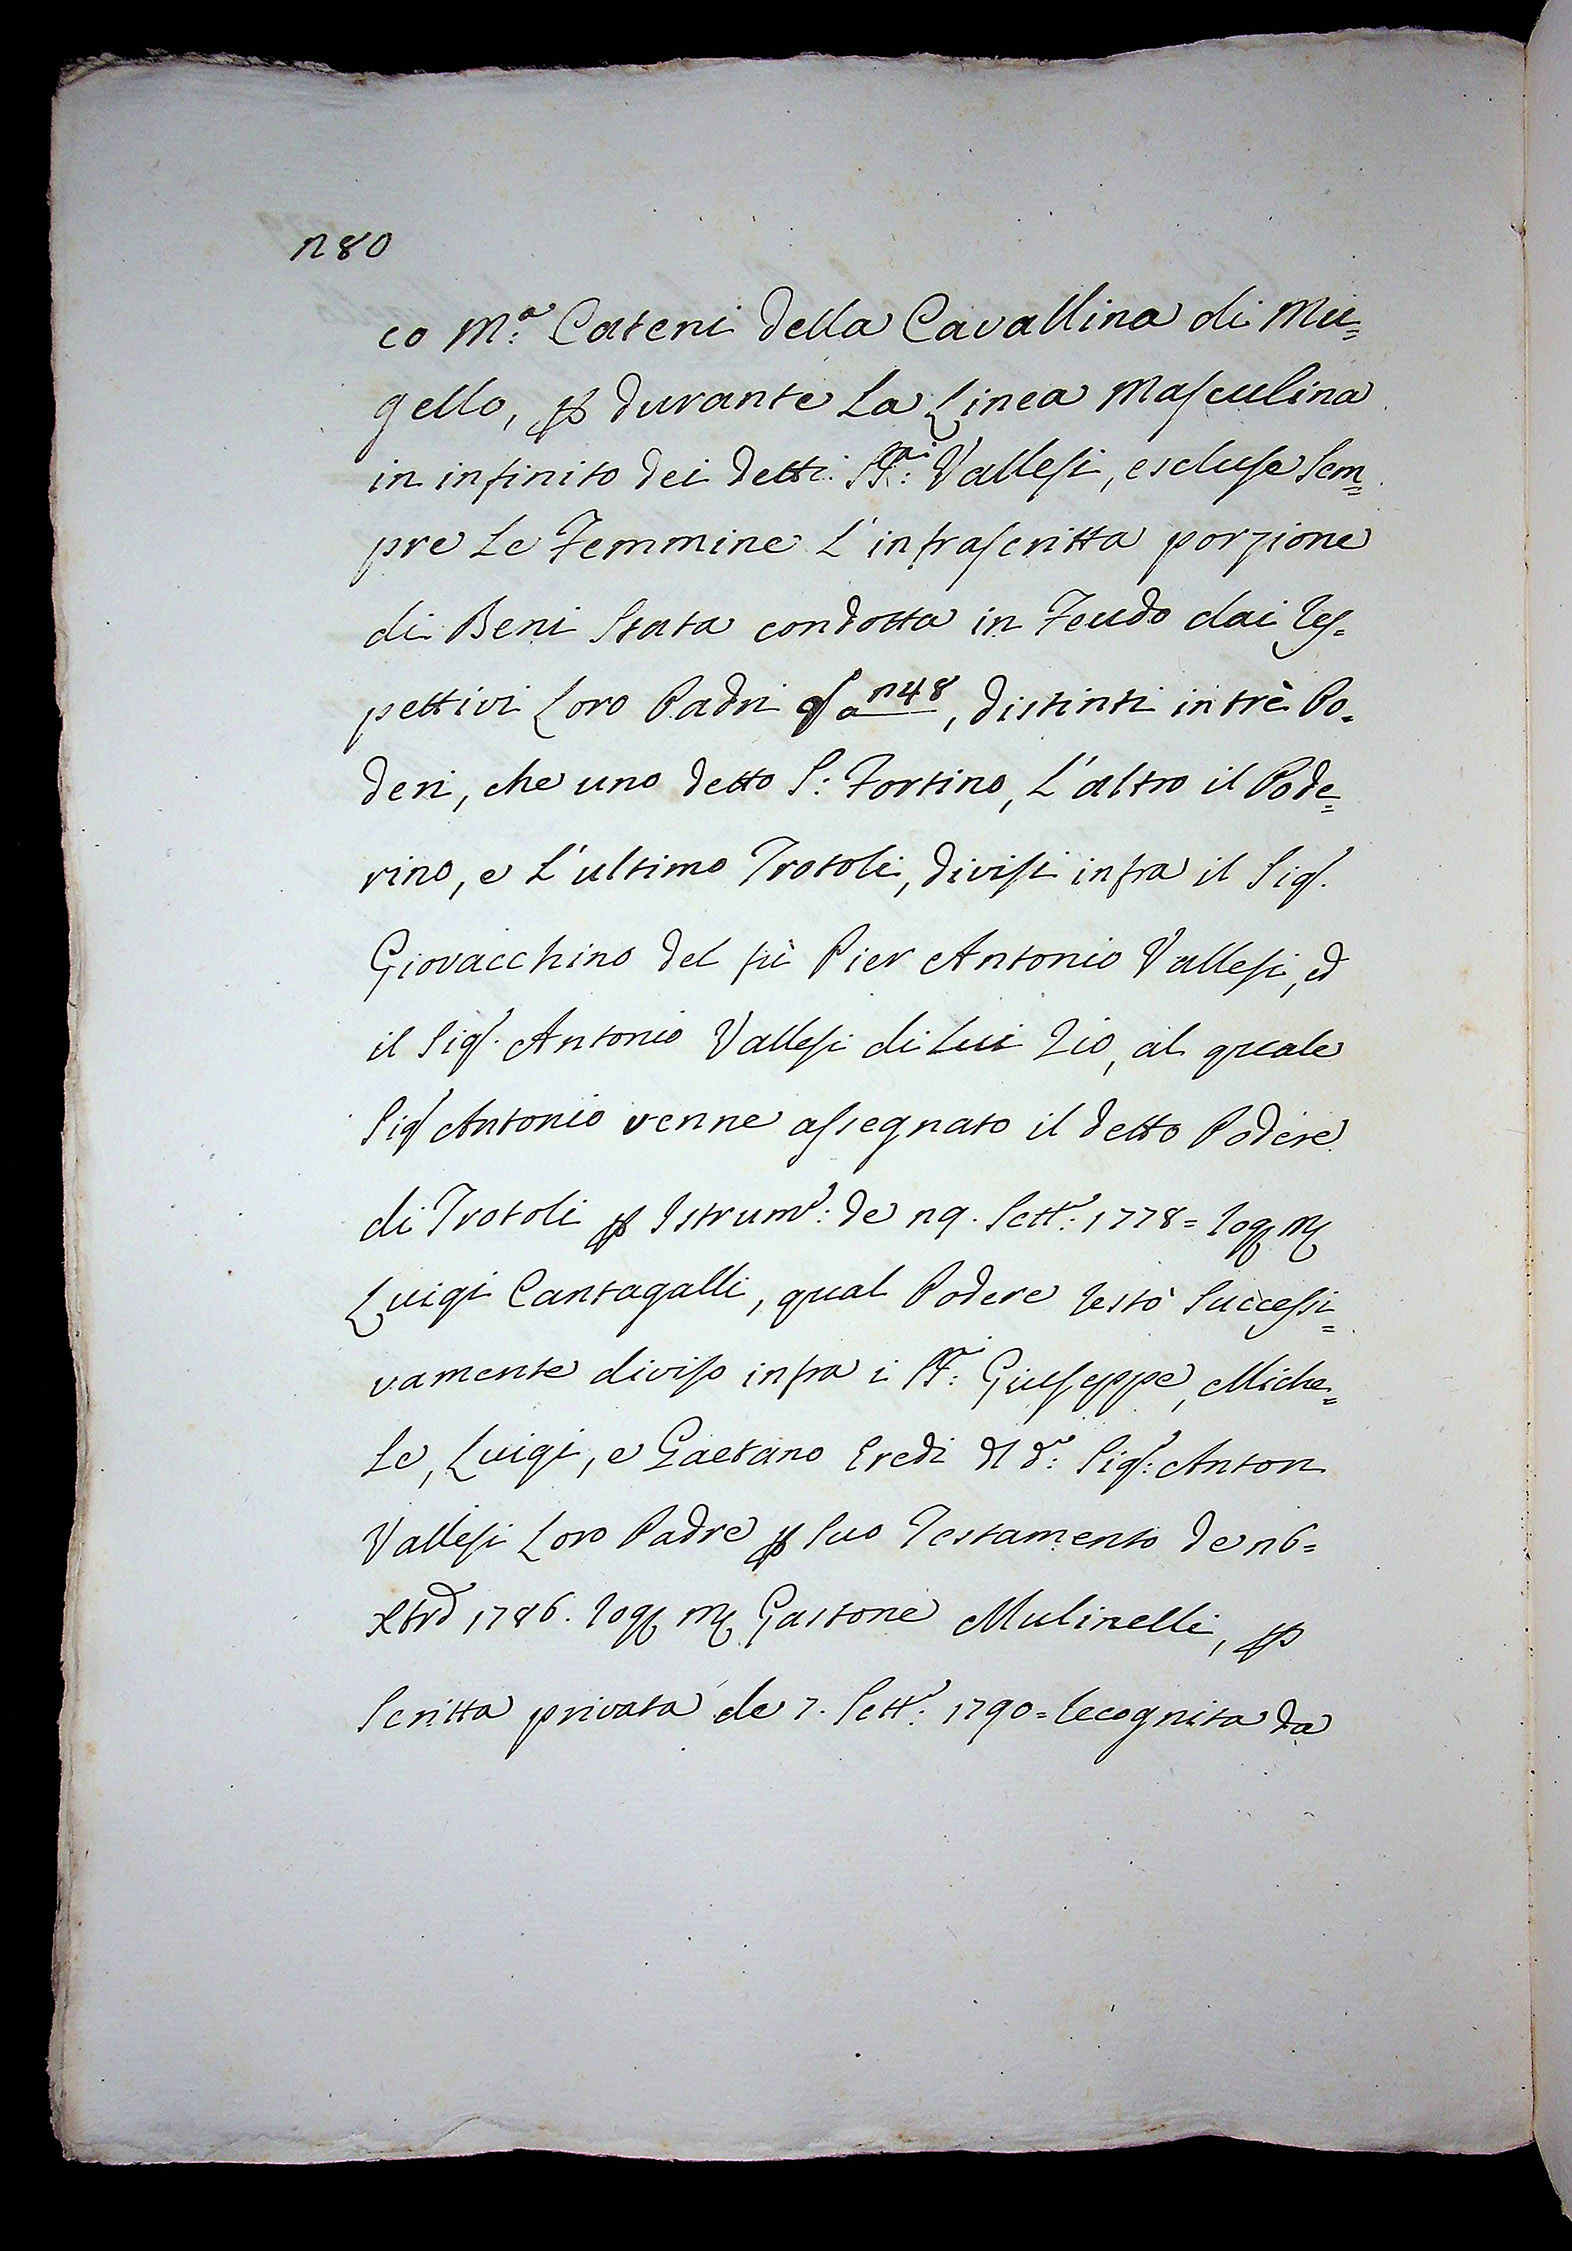 180
co M.ª Cateni della Cavallina di Mu=
gello, p durante La Linea Mascolina
in infinito dei detti SS.ri Vallesi, escluse Sem=
pre Le Femmine L'infrascritta porzione
di Beni Stata condotta in Feudo dai Res=
pettivi Loro Padri a 148, distinti in trè Po=
deri, che uno detto S: Fortino, L'altro il Pode=
rino, e L'ultimo Trotoli, divisi infra il Sig.
Giovacchino del fù Pier Antonio Vallesi, ed
il Sig. Antonio Vallesi di Lui Zio, al quale
Sig Antonio venne assegnato il detto Podere
di Trotoli p Istrum: de 19. Sett: 1778= Rog
Luigi Cantagalli, qual Podere Restò Successi=
vamente diviso infra i SS: Giuseppe, Miche=
Le, Luigi, e Gaetano Eredi dl do: Sig: Anton
Vallesi Loro Padre p Suo Testamento de 16=
Xbre 1786. Rog Gastone Mulinelli, p
Scritta privata de 7. Sett: 1790= Recognita da